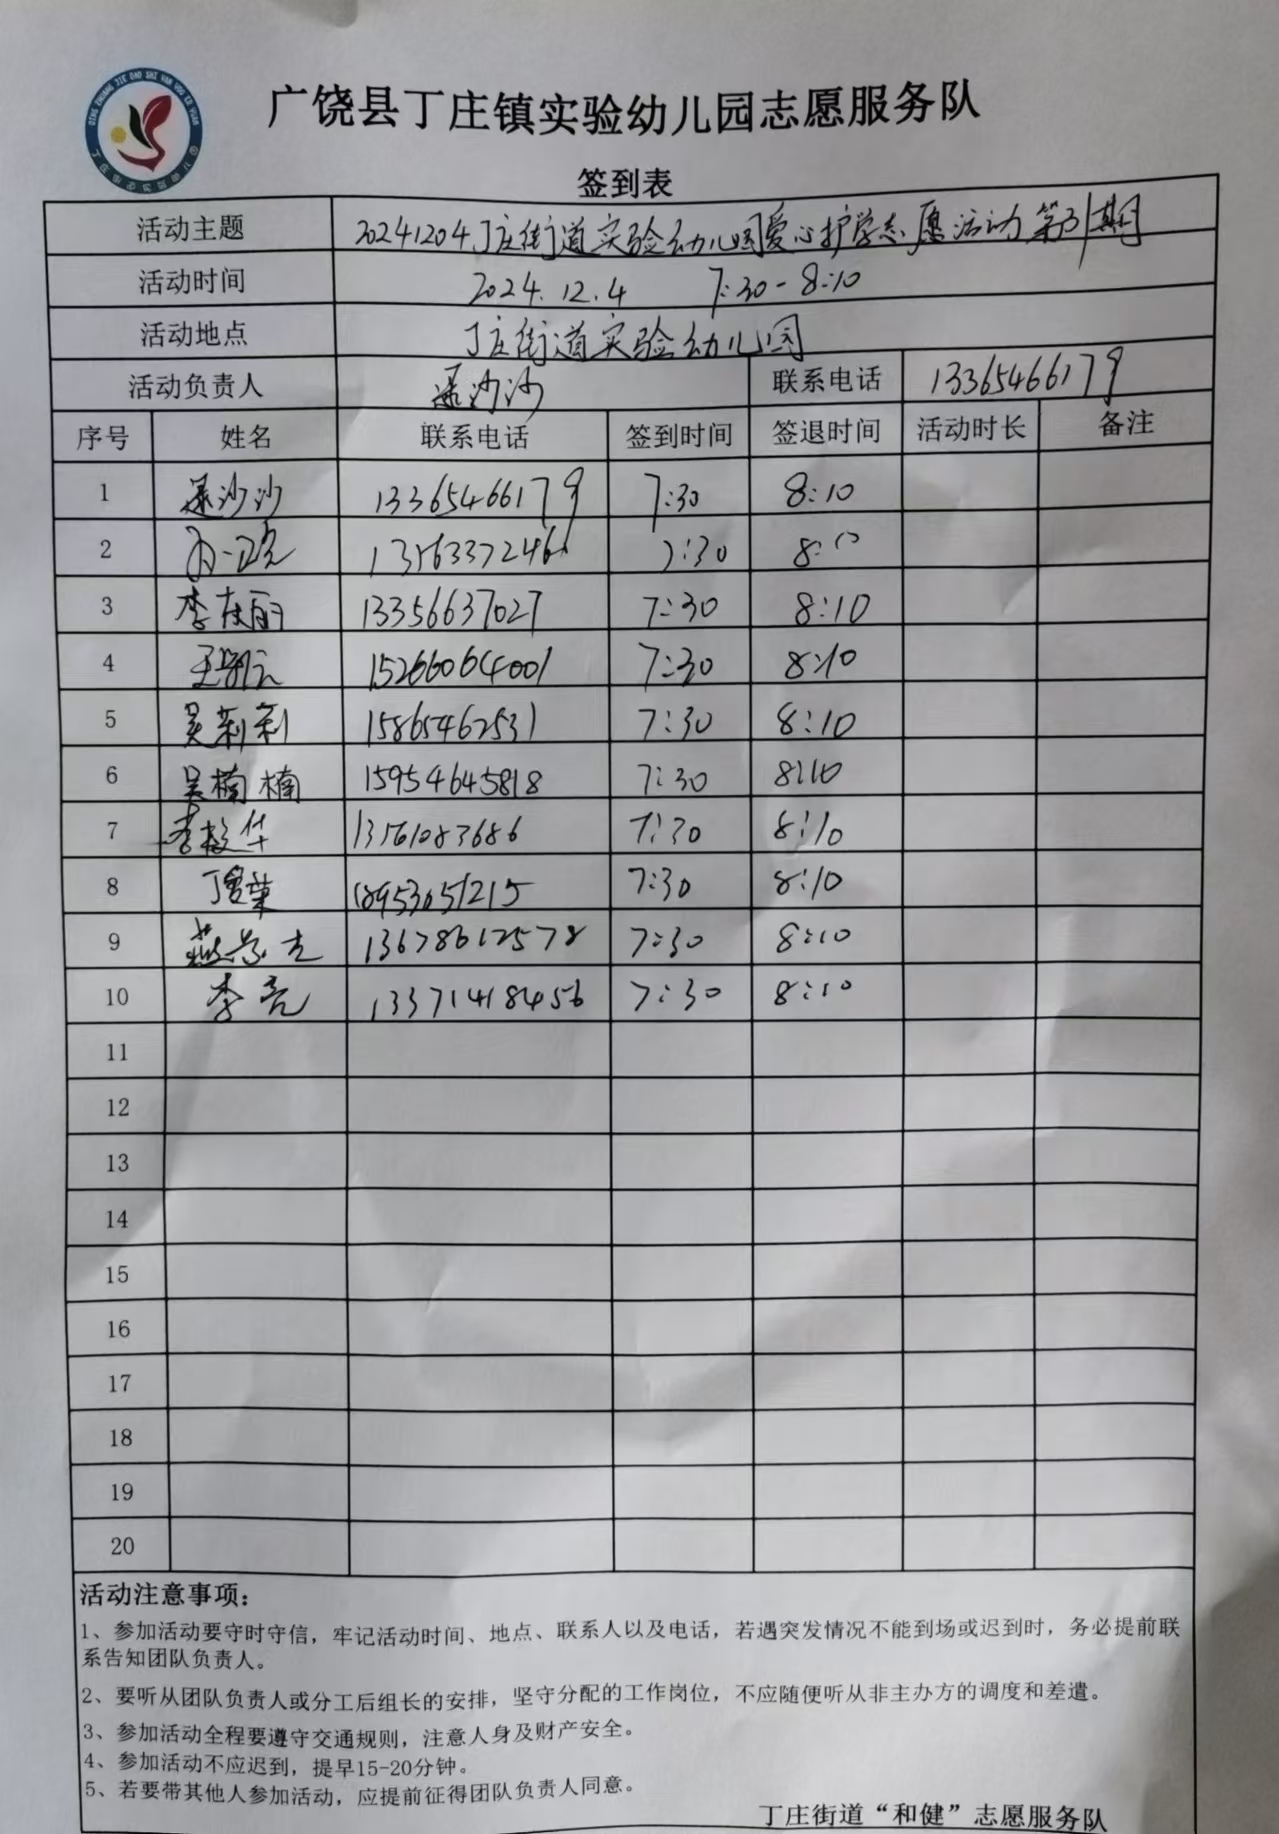 广饶县丁庄镇实验幼儿园志愿服务队
签到表
活动主题 20241204丁庄街道实验幼儿园爱心护学志愿活动第31期
活动时间 2024.12.4 7:30-8:10
活动地点 丁庄街道实验幼儿园
活动负责人 沙沙 联系电话 13365466179
序号 姓名 联系电话 签到时间 签退时间 活动时长 备注
1 沙沙 13365466179 7:30 8:10
2 7:30 8:10
3 李庆丽 13356637027 7:30 8:10
4 王 15266064001 7:30 8:10
5 吴莉莉 15865462531 7:30 8:10
6 吴楠楠 15954645818 7:30 8:10
7 李 华 13561083686 7:30 8:10
8 丁 18953051215 7:30 8:10
9 燕 13678612578 7:30 8:10
10 李亮 13371418456 7:30 8:10
11
12
13
14
15
16
17
18
19
20
活动注意事项：
1、参加活动要守时守信，牢记活动时间、地点、联系人以及电话，若遇突发情况不能到场或迟到时，务必提前联
系告知团队负责人。
2、要听从团队负责人或分工后组长的安排，坚守分配的工作岗位，不应随便听从非主办方的调度和差遣。
3、参加活动全程要遵守交通规则，注意人身及财产安全。
4、参加活动不应迟到，提早15-20分钟。
5、若要带其他人参加活动，应提前征得团队负责人同意。
丁庄街道“和健”志愿服务队